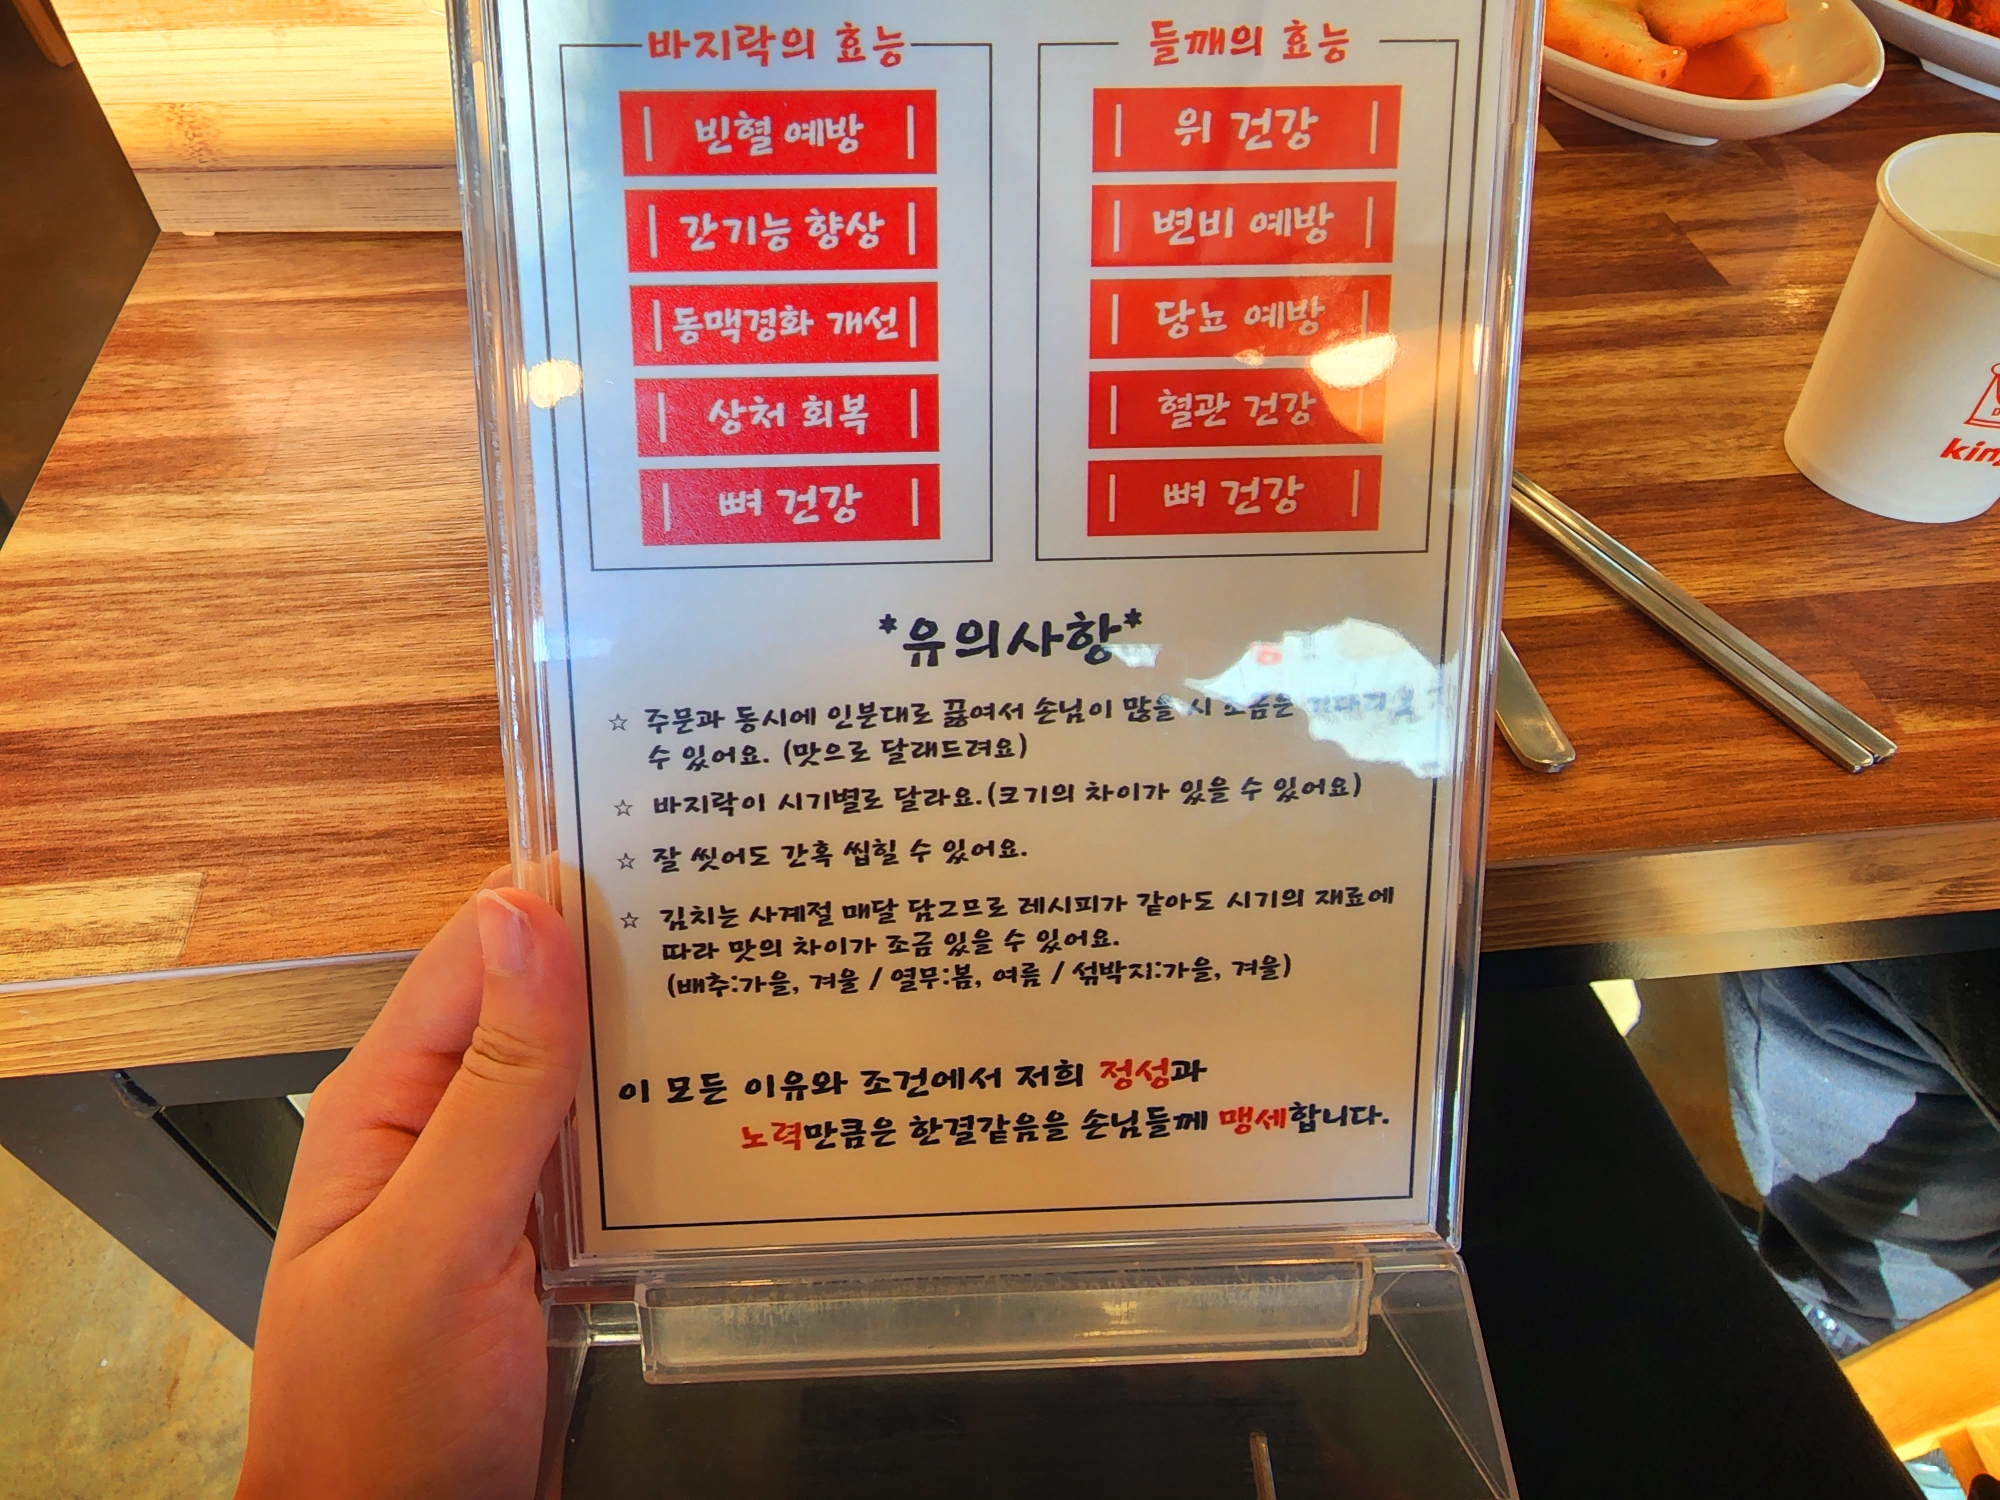 바지락의 효능
빈혈 예방
간기능 향상
동맥경화 개선
상처 회복
뼈 건강
들깨의 효능
위 건강
변비 예방
당뇨 예방
혈관 건강
뼈 건강
*유의사항*
☆ 주문과 동시에 인분대로 끓여서 손님이 많을 시 조금은
수 있어요. (맛으로 달래드려요)
☆ 바지락이 시기별로 달라요.(크기의 차이가 있을 수 있어요)
☆ 잘 씻어도 간혹 씹힐 수 있어요.
☆ 김치는 사계절 매달 담그므로 레시피가 같아도 시기의 재료에
따라 맛의 차이가 조금 있을 수 있어요.
(배추:가을, 겨울 / 열무:봄, 여름 / 섞박지:가을, 겨울)
이 모든 이유와 조건에서 저희 정성과
노력만큼은 한결같음을 손님들께 맹세합니다.